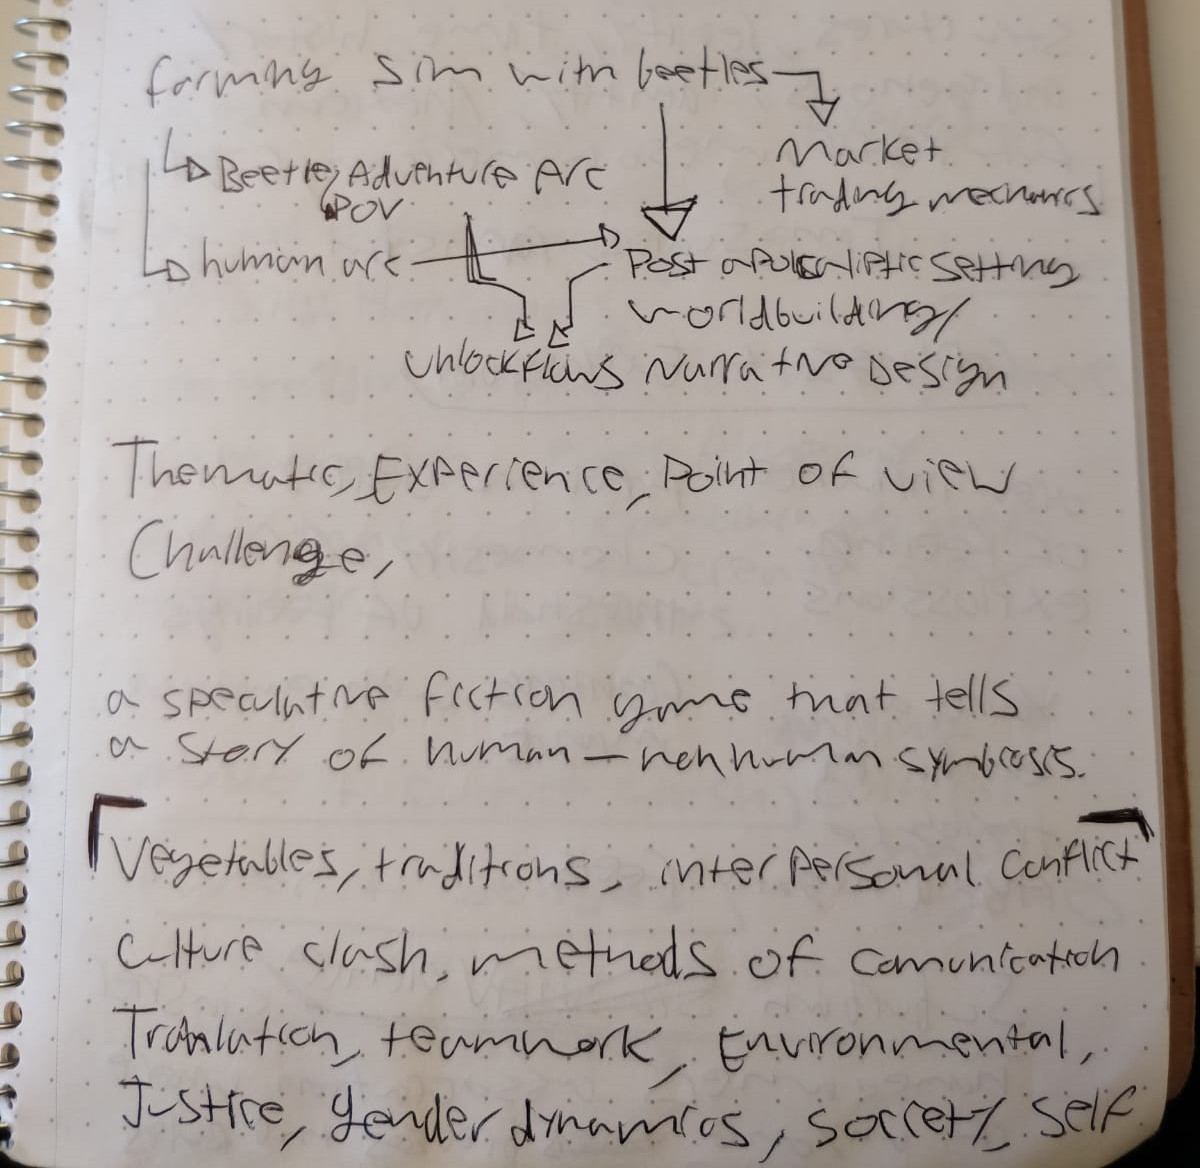 farming sim with beetles
Market
trading mechanics
Beetle, Adventure Arc
POV
human arc
Post apocaliptic setting
worldbuilding/
unlockflows Narrative Design
Thematic, Experience, Point of view
Challenge,
a speculative fiction game that tells
a story of human - nonhuman symbiosis.
Vegetables, traditions, interpersonal conflict
culture clash, methods of comunication
Tranlation, teamwork, Environmental,
Justice, gender dynamics, society, self